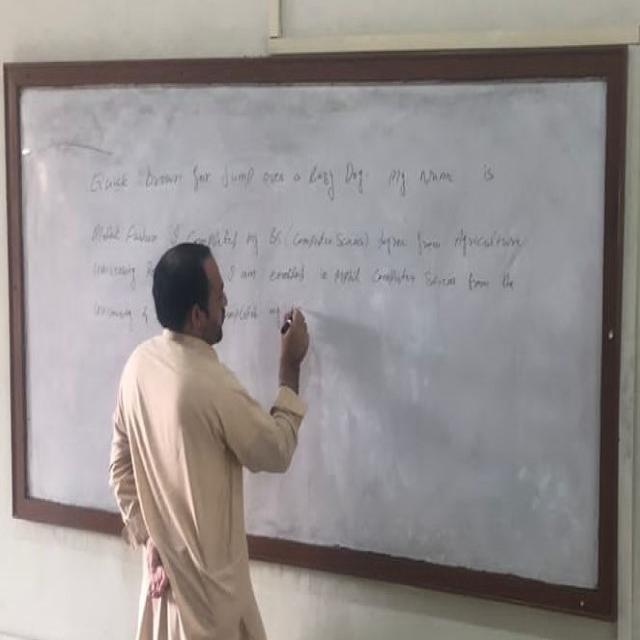 Quick brown fox Jump over a Lazy Dog. My name is
I Completed my BS (Computer Science) degree from Agriculture
University I am enrolled in Mphil Computer Science from the
University of Complete my